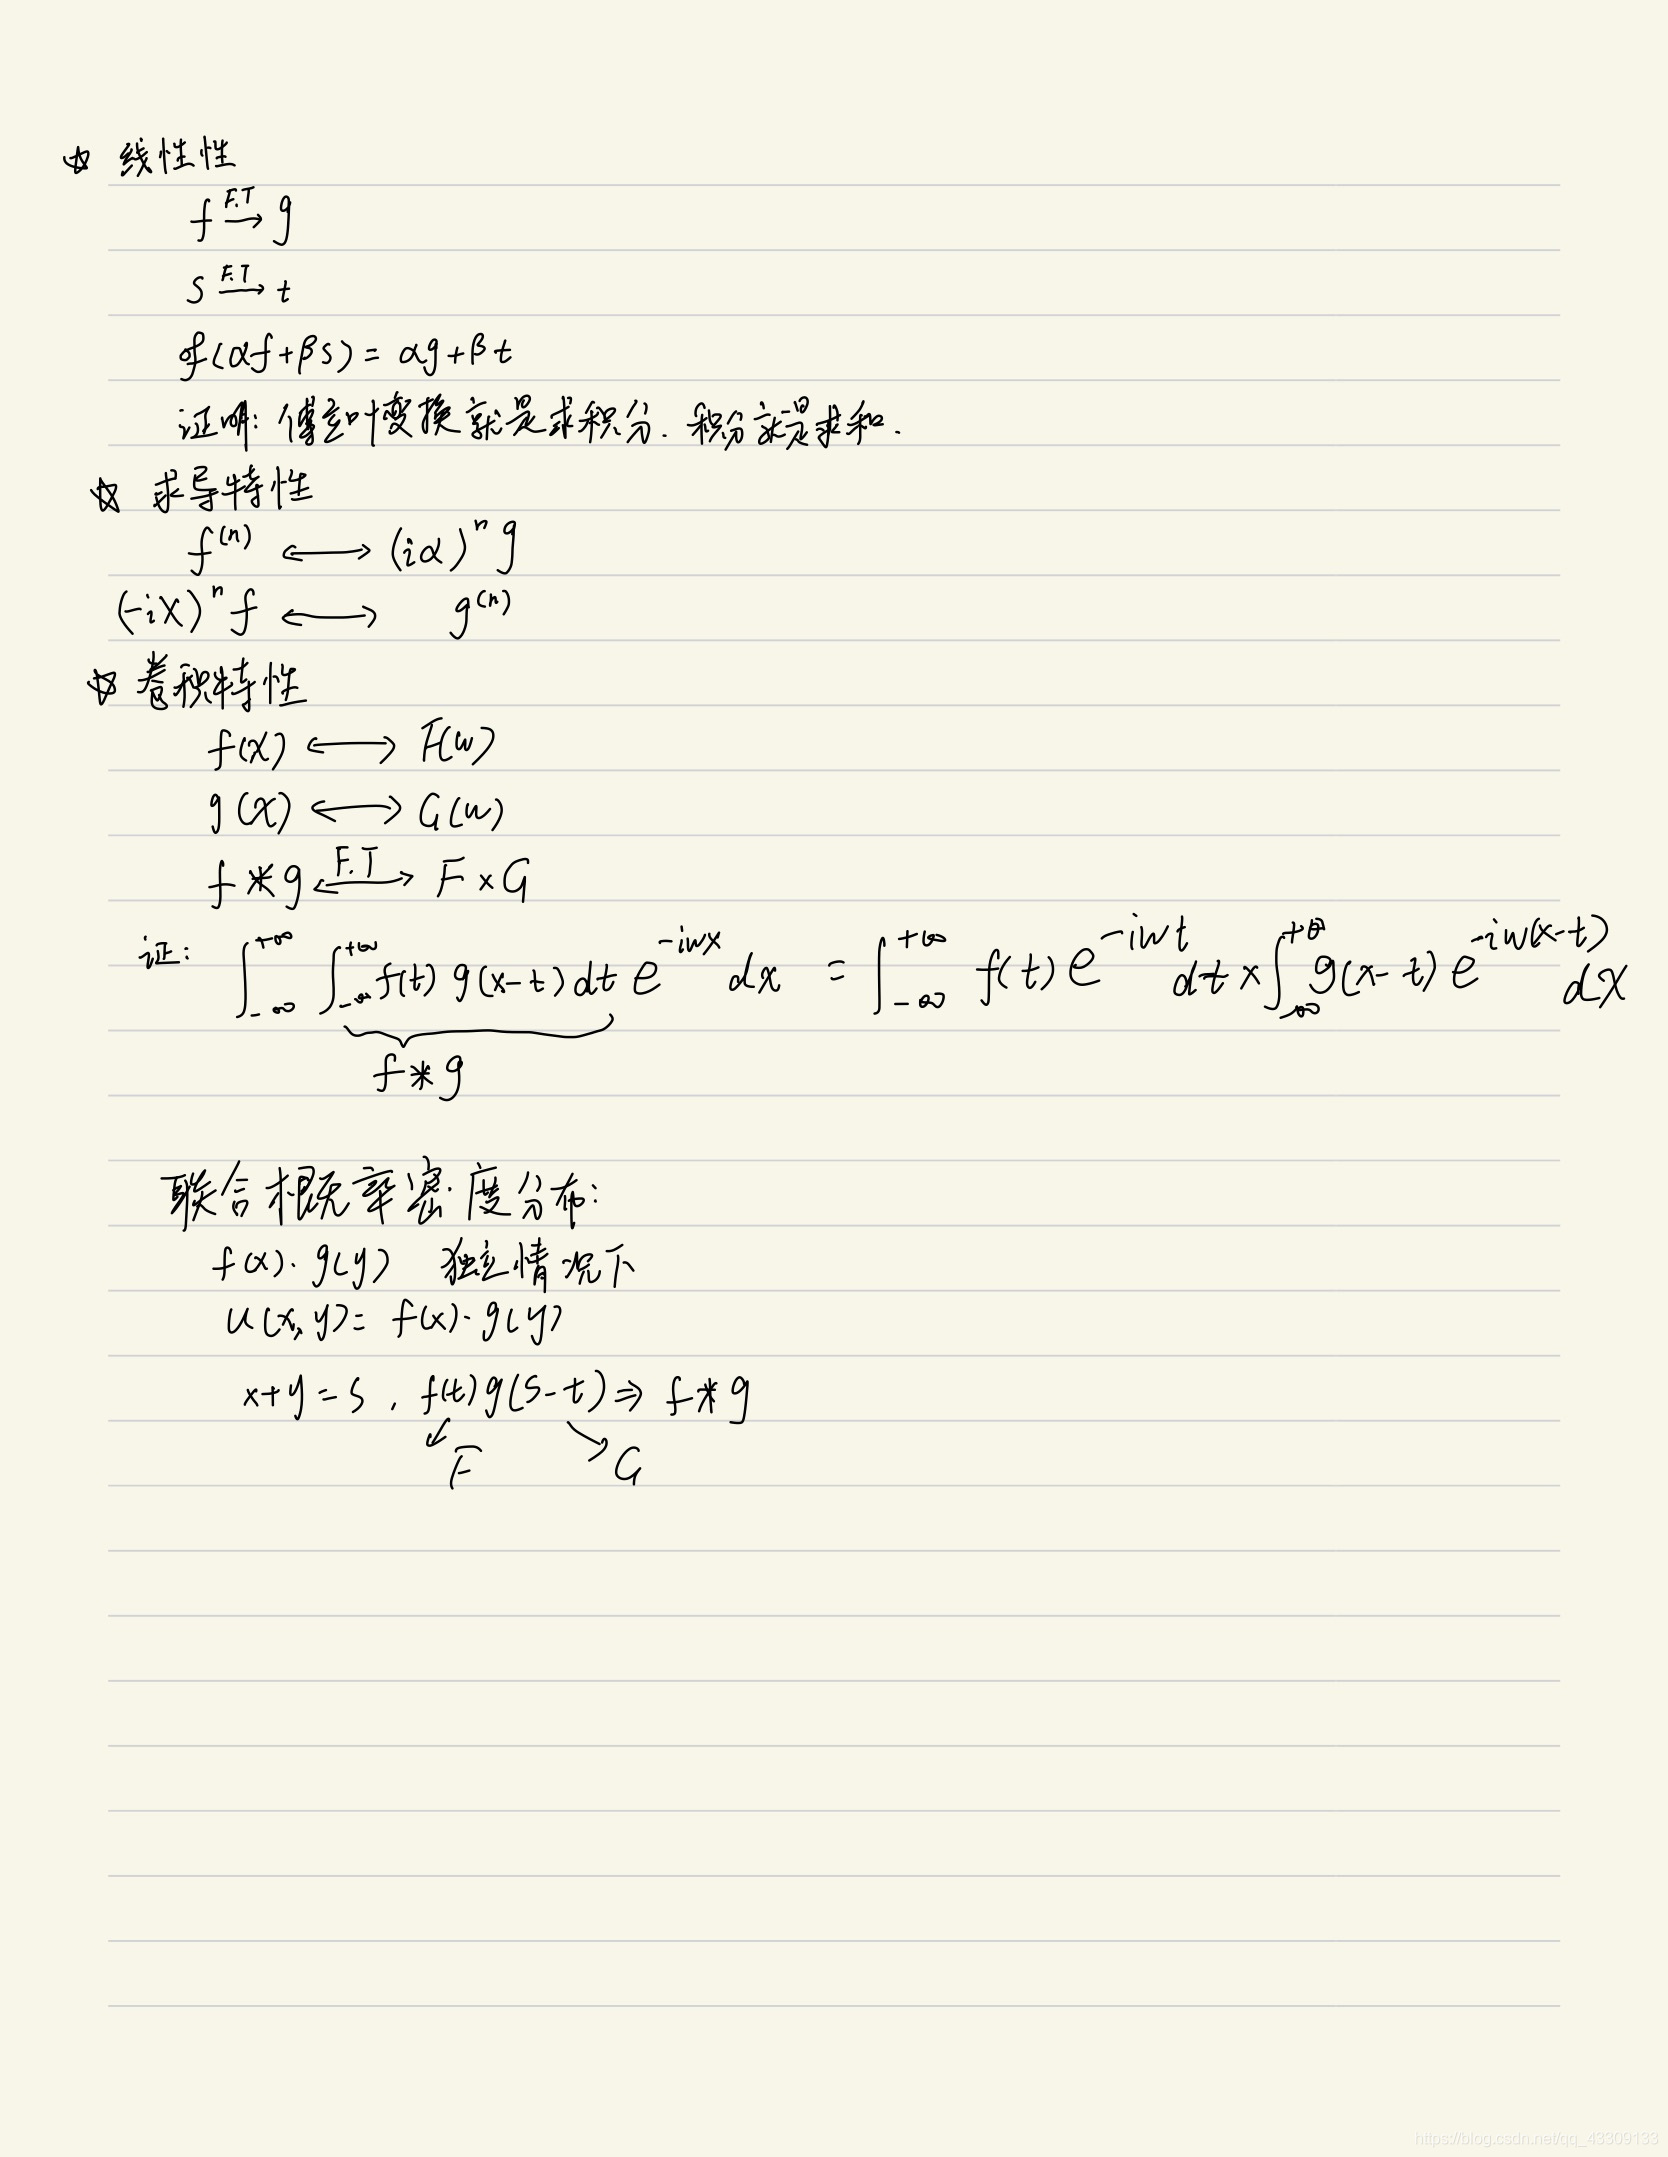 ☆ 线性性
f F.T→ g
S F.T→ t
ℱ(αf+βs) = αg+βt
证明: 傅立叶变换就是求积分. 积分就是求和.
☆ 求导特性
f^(n) ⟷ (iα)^n g
(-ix)^n f ⟷ g^(n)
☆ 卷积特性
f(x) ⟷ F(w)
g(x) ⟷ G(w)
f * g ⟷F.T F × G
证: ∫_{-∞}^{+∞} ∫_{-∞}^{+∞} f(t) g(x-t) dt e^{-iwx} dx = ∫_{-∞}^{+∞} f(t) e^{-iwt} dt × ∫_{-∞}^{+∞} g(x-t) e^{-iw(x-t)} dx
f * g
联合概率密度分布:
f(x)·g(y) 独立情况下
u(x,y) = f(x)·g(y)
x+y=s , f(t)g(s-t) ⇒ f * g
↙ F ↘ G
https://blog.csdn.net/qq_43309133